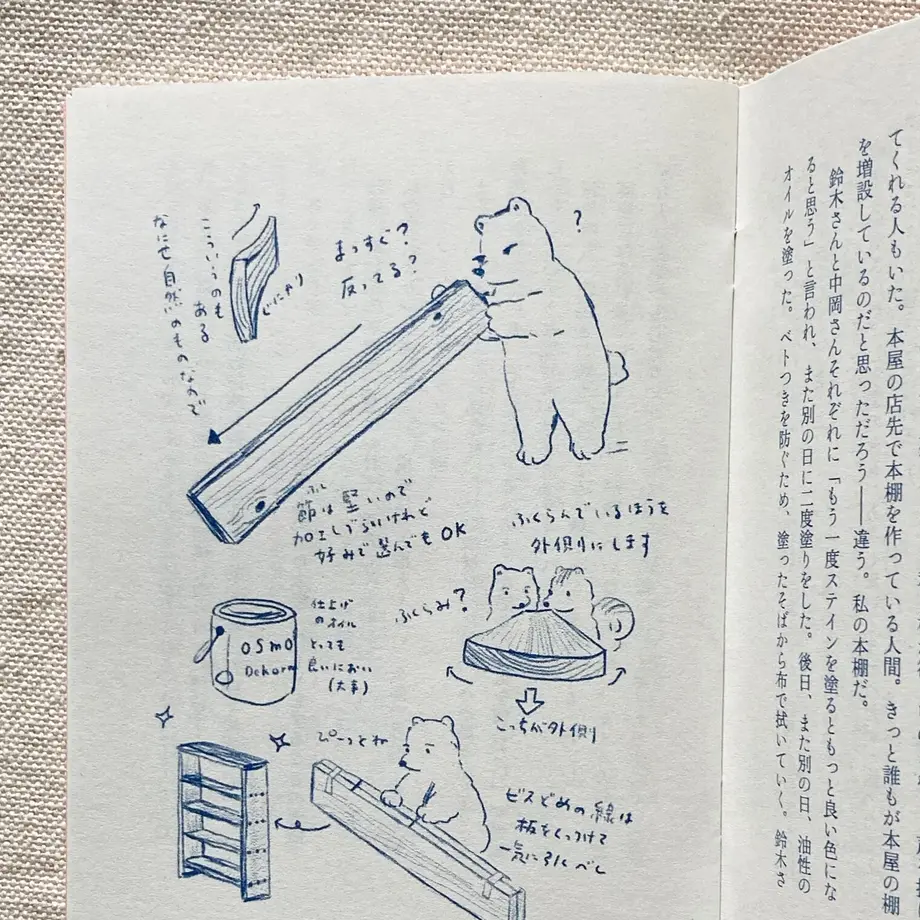 まっすぐ?
反ってる?
?
こういうのも
ある
ぐにゃり
なにせ自然のものなので
ふし
節は堅いので
加工しづらいけれど
好みで選んでもOK
ふくらんでいるほうを
外側にします
ふくらみ?
こっちが外側
OSMO
Dekorn
仕上げ
のオイル
とっても
良いにおい
(大事)
ぴーっとね
ビスどめの線は
板をくっつけて
一気に引くべし
てくれる人もいた。本屋の店先で本棚を作っている人間。きっと誰もが本屋の棚
を増設しているのだと思っただろう——違う。私の本棚だ。
鈴木さんと中岡さんそれぞれに「もう一度ステインを塗るともっと良い色にな
ると思う」と言われ、また別の日に二度塗りをした。後日、また別の日、油性の
オイルを塗った。ベトつきを防ぐため、塗ったそばから布で拭いていく。鈴木さ